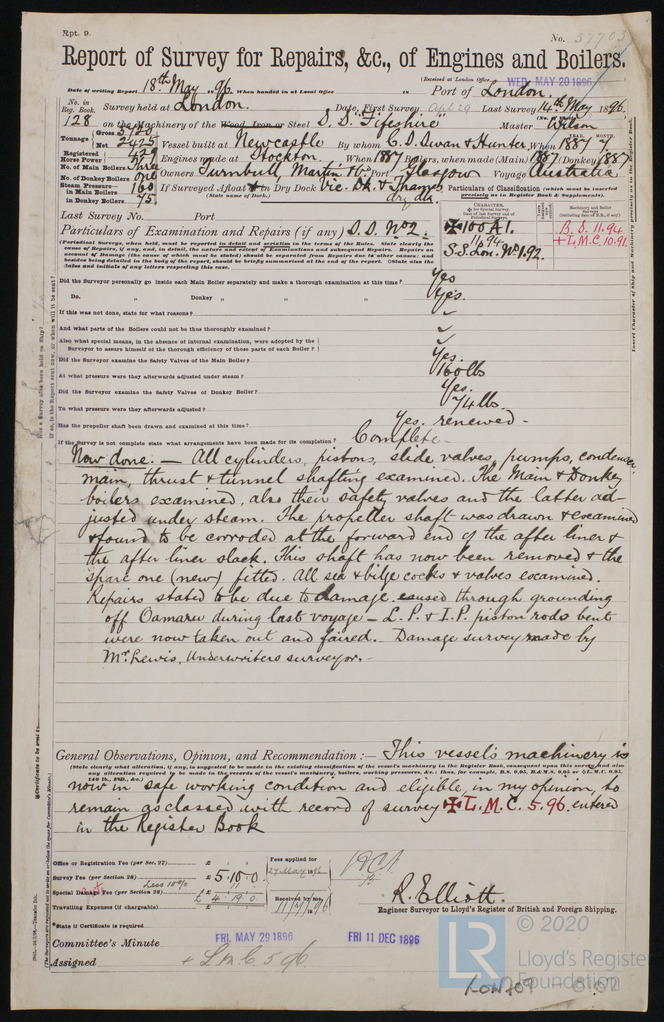 Rpt. 9.
No. 57703
Report of Survey for Repairs, &c., of Engines and Boilers.
(Received at London Office WED. MAY 20 1896
Date of writing Report 18th May 1896 When handed in at Local Office 18 Port of London.
No. in Reg. Book. Survey held at London. Date, First Survey Apl 29 Last Survey 14th May 1896.
128 on the Machinery of the Wood, Iron or Steel S.S. "Fifeshire" Master Wilson
Tonnage Gross 3720 Net 2425 Vessel built at Newcastle By whom C. S. Swan & Hunter When 1887 7
Registered Horse Power Engines made at Stockton. When 1887 Boilers, when made (Main) 1887 (Donkey) 1887
No. of Main Boilers Three
No. of Donkey Boilers One Owners Turnbull Martin & Co Port Glasgow Voyage Australia
Steam Pressure in Main Boilers 160 in Donkey Boilers 75 If Surveyed Afloat or in Dry Dock Vic. Dk. & Thames dry dk.
(State name of Dock.)
Particulars of Classification (which must be inserted precisely as in Register Book & Supplements).
Last Survey No. Port
Particulars of Examination and Repairs (if any) S.S. No 2.
✠100A1. 11,94 S.S. Lon. No 1.92.
B.S. 11.94
✠L.M.C. 10.91.
Did the Surveyor personally go inside each Main Boiler separately and make a thorough examination at this time? Yes
Do. „ Donkey „ „ „ Yes.
If this was not done, state for what reasons?
And what parts of the Boilers could not be thus thoroughly examined?
Also what special means, in the absence of internal examination, were adopted by the Surveyor to assure himself of the thorough efficiency of those parts of each Boiler?
Did the Surveyor examine the Safety Valves of the Main Boiler? Yes.
At what pressure were they afterwards adjusted under steam? 160 lbs
Did the Surveyor examine the Safety Valves of Donkey Boiler? Yes.
To what pressure were they afterwards adjusted? 74 lbs.
Has the propeller shaft been drawn and examined at this time? Yes. renewed -
If the Survey is not complete state what arrangements have been made for its completion? Complete -
Now done: - All cylinders, pistons, slide valves, pumps, condenser
main, thrust & tunnel shafting examined. The Main & Donkey
boilers examined, also their safety valves and the latter ad-
justed under steam. The propeller shaft was drawn & examined
& found to be corroded at the forward end of the after liner &
the after liner slack. This shaft has now been removed & the
spare one (new) fitted. All sea & bilge cocks & valves examined.
Repairs stated to be due to damage caused through grounding
off Oamaru during last voyage - L.P. & I.P. piston rods bent
were now taken out and faired. - Damage survey made by
Mr Lewis, Underwriters surveyor. -
General Observations, Opinion, and Recommendation :- This vessel's machinery is
now in safe working condition and eligible, in my opinion, to
remain as classed with record of survey ✠L.M.C. 5.96. entered
in the Register Book
Office or Registration Fee (per Sec. 27) £
Survey Fee (per Section 28) £ 5.10.0.
Less 10%
Special Damage Fee (per Section 28) £ 11.
£ 4:19.0.
Travelling Expenses (if chargeable) £
Fees applied for 27 May 1896
Received by me, 11/7/96
R. Elliott.
Engineer Surveyor to Lloyd's Register of British and Foreign Shipping.
*State if Certificate is required
Committee's Minute FRI. MAY 29 1896 FRI 11 DEC 1896
Assigned + LMC 5.96
© 2020
LR
Lloyd's Register
Foundation
LON709 - 0102